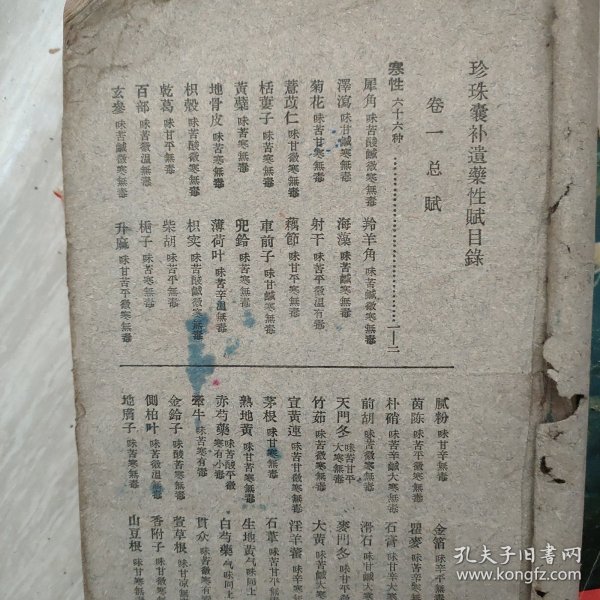 珍珠囊补遺藥性賦目錄
卷一 总賦
寒性 六十六种 一—二
犀角 味苦酸鹹微寒無毒 羚羊角 味苦鹹微寒無毒
澤瀉 味甘鹹寒無毒 海藻 味苦鹹寒無毒
菊花 味苦甘寒無毒 射干 味苦平微溫有毒
薏苡仁 味甘微寒無毒 藕節 味甘平寒無毒
栝蔞子 味苦寒無毒 車前子 味甘鹹寒無毒
黃蘗 味苦寒無毒 兜鈴 味苦寒無毒
地骨皮 味苦寒無毒 薄荷叶 味苦辛温無毒
枳殼 味苦酸微寒無毒 枳实 味苦酸鹹微寒無毒
乾葛 味甘平無毒 柴胡 味苦平無毒
百部 味苦微溫無毒 梔子 味苦寒無毒
玄參 味苦鹹微寒無毒 升麻 味甘苦平微寒無毒
膩粉 味甘辛無毒 金箔 味辛平有毒
茵陈 味苦平微寒無毒 瞿麥 味苦辛寒
朴硝 味苦辛鹹大寒無毒 石膏 味甘辛大寒
前胡 味苦微寒無毒 滑石 味甘鹹大
天門冬 味苦甘平大寒無毒 麥門冬 味甘平微
竹茹 味苦寒無毒 大黃 味苦鹹大
宣黃連 味苦甘微寒無毒 淫羊藿 味辛寒
茅根 味甘寒無毒 石葦 味苦甘平
熟地黃 味甘苦寒無毒 生地黃 气味同上
赤芍藥 味苦酸平微寒有小毒 白芍藥 气味同上
牽牛 味苦寒有毒 貫众 味苦微寒有
金鈴子 味酸苦寒無毒 萱草根 味甘凉無
側柏叶 味苦微温無毒 香附子 味甘微寒
地膚子 味苦寒無毒 山豆根 味甘寒無
孔夫子旧书网
www.kongfz.com